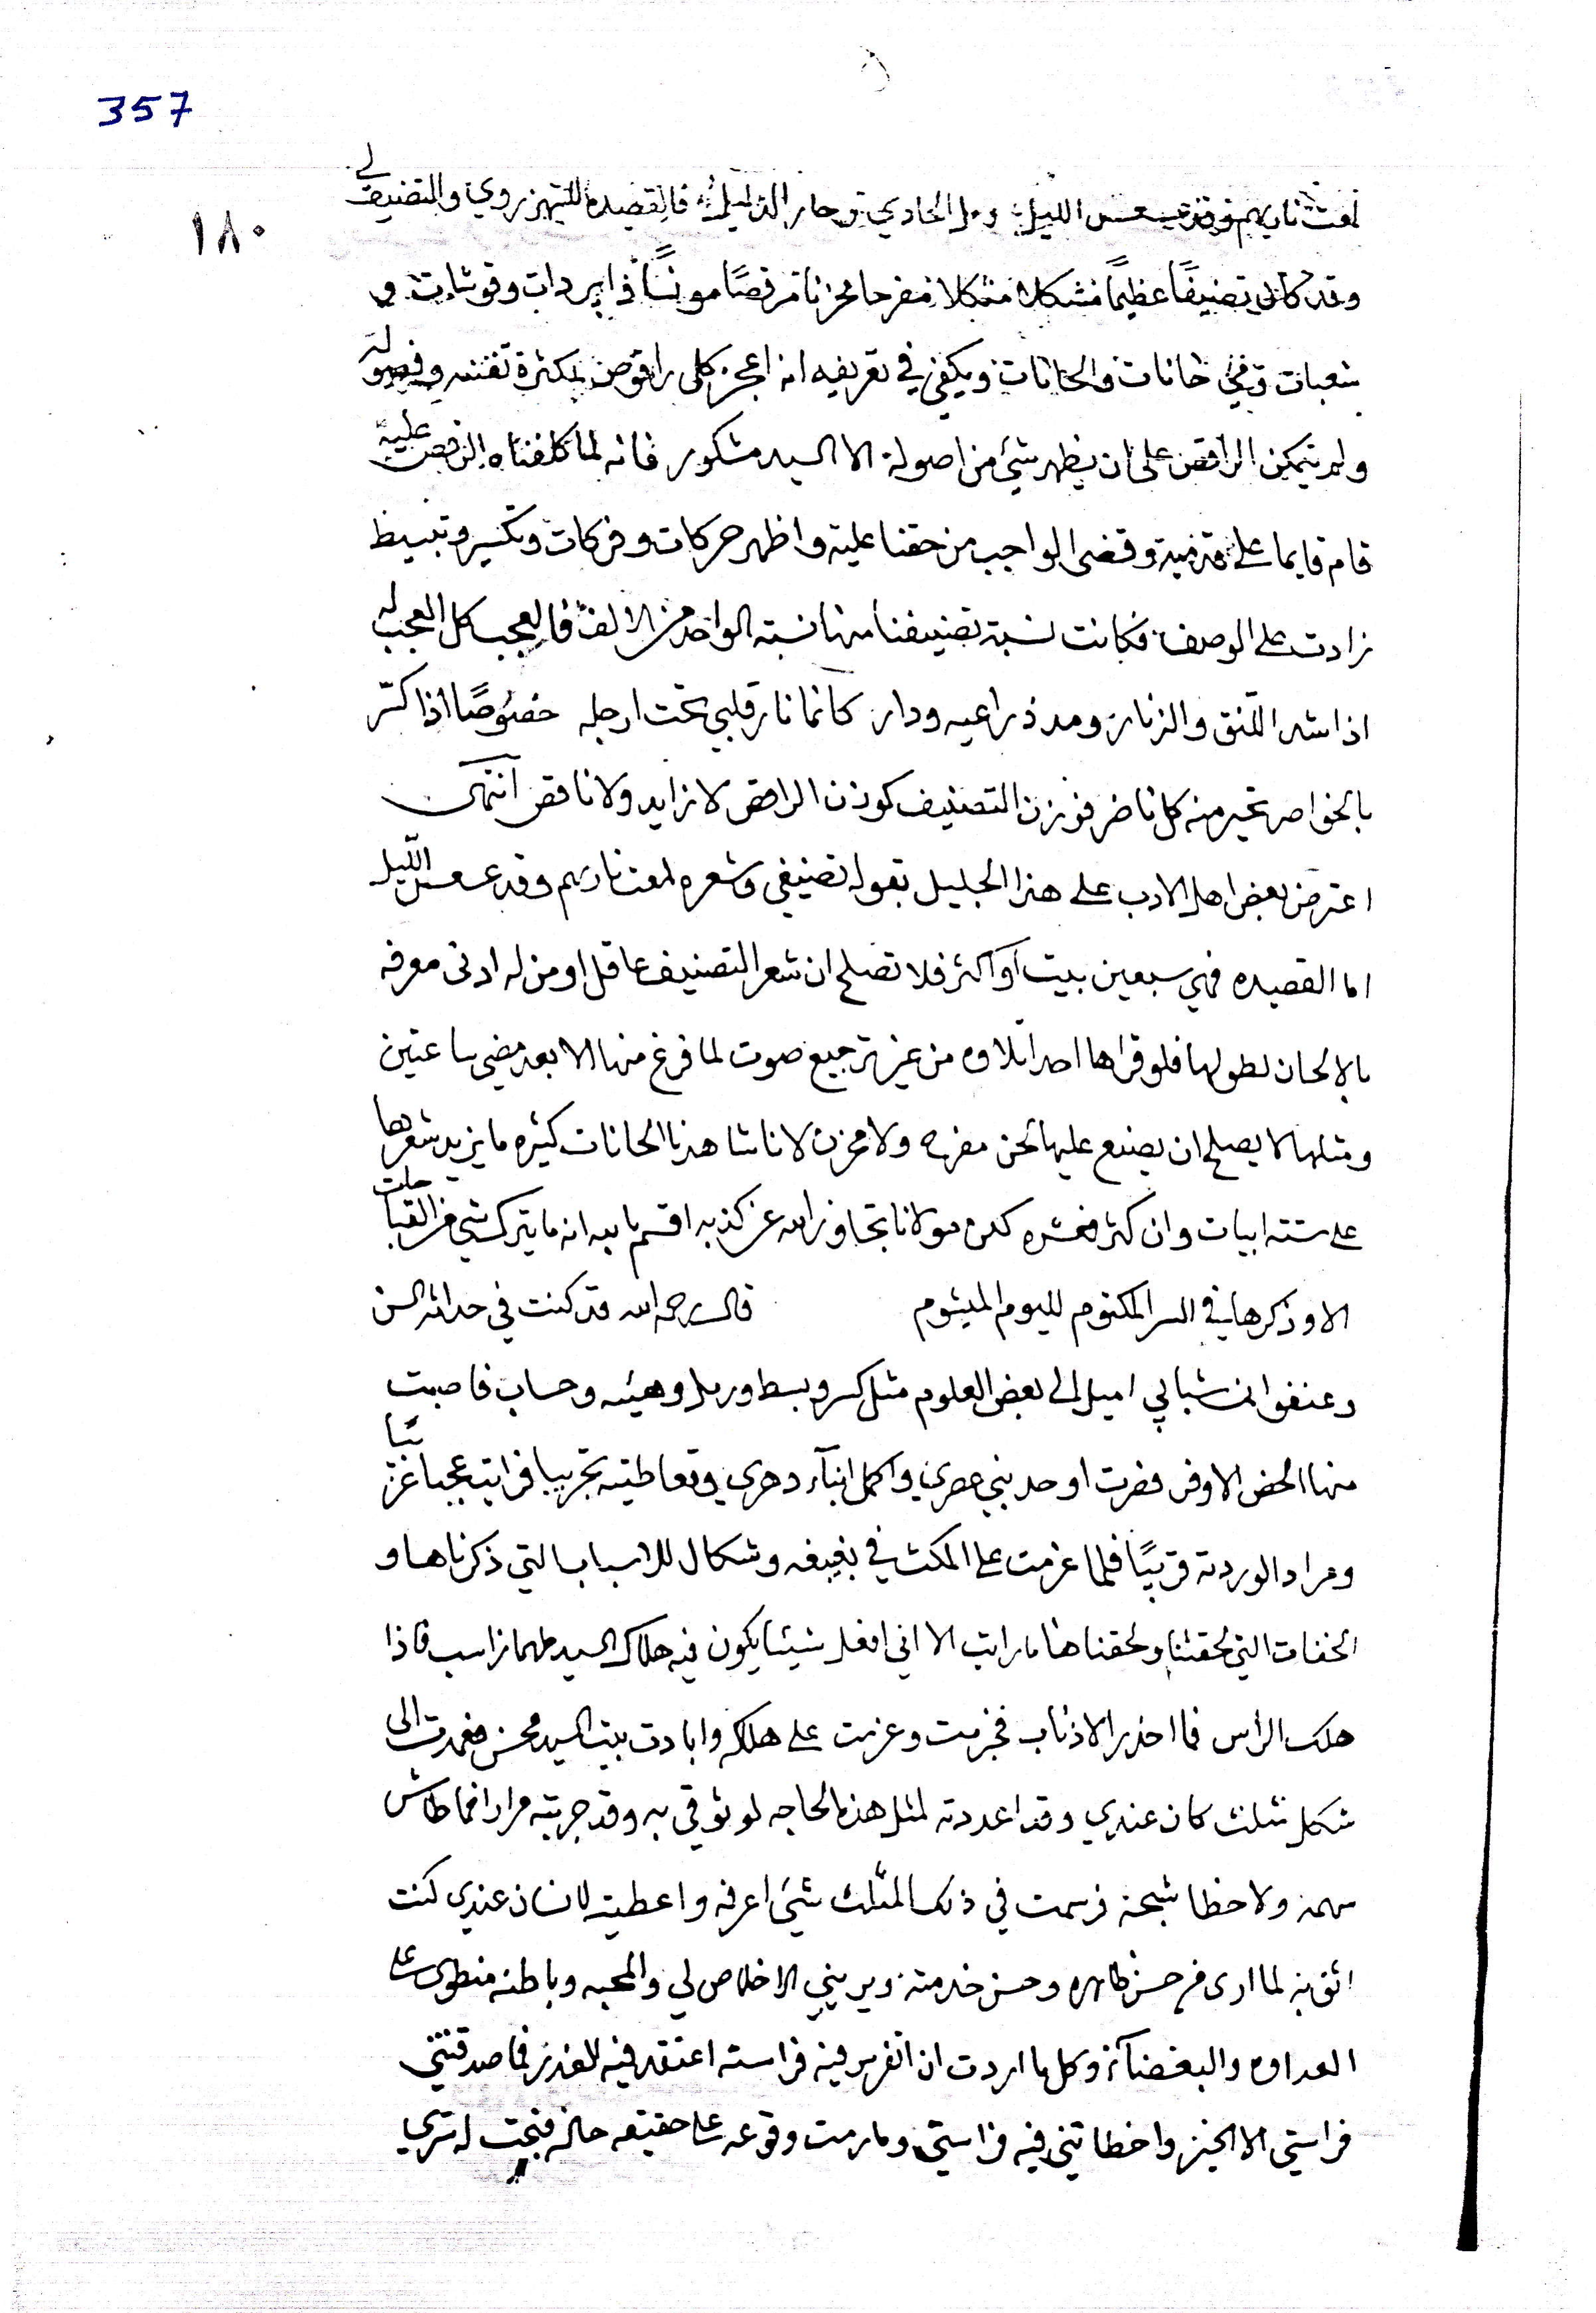 357
١٨٠
لمعت نارهم وقد عسعس الليل ومل الحادي وحار الدليل فالقصيده للشهرزوري والتصنيف لي
وقد كان تصنيفًا عظيمًا مشكلا مفرحا محزنا مرقصًا مونسًا ذا بردات وقوشات و
شعبات وفي خانات والحانات ويكفي في تعريفه انه اعجز كل راقوص لكثرة تفننه وفصوله
ولم يتمكن الراقص على ان يظهر شئ من اصوله الا السيد مشكور فانه لما كلفناه الرقص عليه
قام قايما على قدميه وقضى الواجب من حقنا عليه واظهر حركات وفركات وتكسير وتبسيط
زادت على الوصف فكانت نسبة تصنيفنا منها نسبة الواحد من الالف فالعجب كل العجب له
اذا شد التنق والزنار ومد ذراعيه ودار كانما نار قلبي تحت ارجله خصوصًا اذا كسّر
بالخواصر تحير منه كل ناضر فوزن التصنيف كوزن الراقص لا زايد ولا ناقص انتهى
اعترض بعض اهل الادب على هذا الجليل بقوله تصنيفي وشعره لمعت نارهم وقد عسعس الليل
اما القصيده فهي سبعين بيت او اكثر فلا تصلح ان شعر التصنيف عاقل او من له ادنى معرفه
بالالحان لطولها فلو قراها احد تلاوه من غير ترجيع صوت لما فرغ منها الا بعد مضي ساعتين
ومثلها لا يصلح ان يصنع عليها لحن مفرح ولا محزن لانا شاهدنا الحانات كثيره ما يزيد شعرها
على ستة ابيات وان كثر فعشره كدن مولانا تجاوز الله عن كذبه اقسم بالله انه ما يترك شي من القباحات
الا وذكرها في السر المكتوم لليوم الميشوم قال رحمه الله قد كنت في حداثة السن
وعنفوان شبابي اميل الى بعض العلوم مثل كسر وبسط ورمل وهيئه وحساب فاصبت
منها الحض الاوفر فصرت اوحد بني عصري واكمل ابناء دهري وتعاطيته تجريبا فرايته عجبا غريبا
ومراد الوردته قريبًا فلما عزمت على المكث في بغيغه وشكال للاسباب التي ذكرناها و
الخفات التي لحقتنا ولحقناها ما رايت الا اني افعل شيئا يكون فيه هلاك السيد طهمازاسب فاذا
هلك الراس فما احذر الاذناب فجزمت وعزمت على هلكه وابادت بيت السيد محسن فعمدت الى
شكل مثلث كان عندي وقد اعددته لمثل هذه الحاجه لوثوقي به وقد جربته مرارا فما طاش
سهمه ولا خطا شبحه فرسمت في ذلك المثلث شئ اعرفه واعطيته لانسان عندي كنت
اثق به لما ارى من حسن ظاهره وحسن خدمته ويريني الاخلاص لي والمحبه وباطنه منطوى على
العداوه والبغضاء وكل ما اردت ان اتفرس فيه فراسته اعتقد فيه للغدر فما صدقتني
فراستي الا الخير واخطاتني فيه فراستي وما رمت وقوعه على حقيقه حاله فبحت له بسري